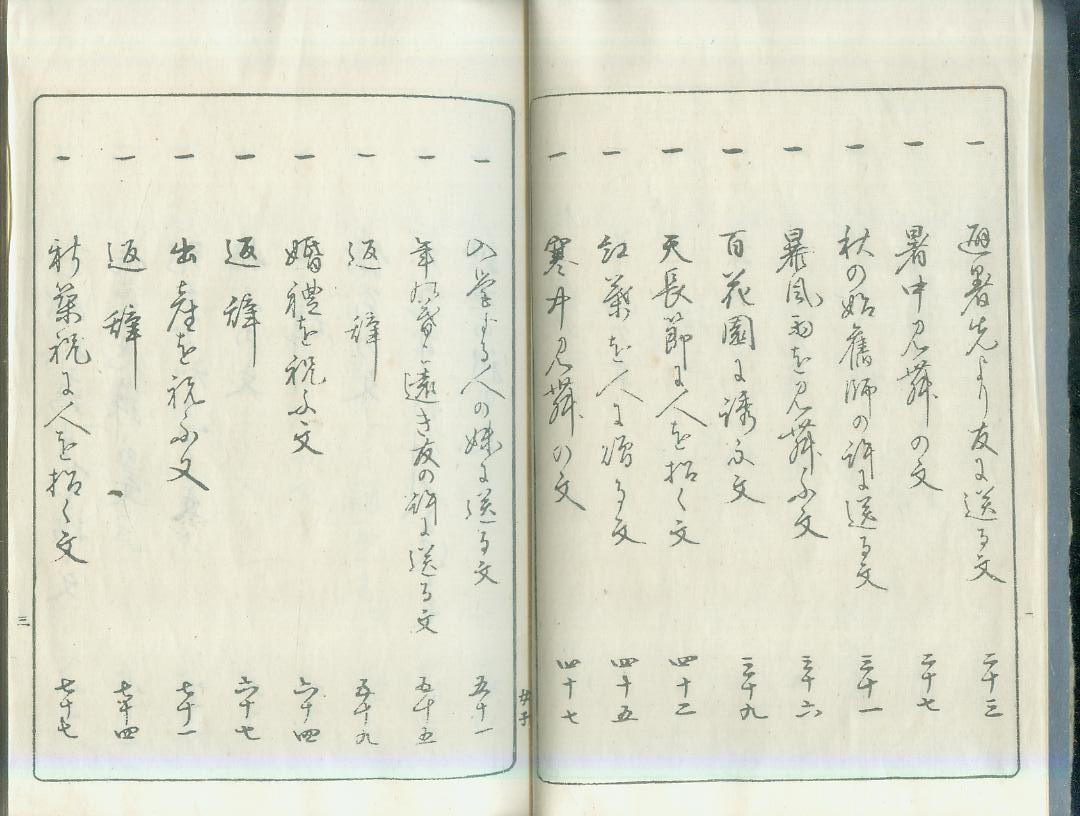 一 避暑先より友に送る文 二十三
一 暑中見舞の文 二十七
一 秋の始舊師の許に送る文 三十一
一 暴風雨を見舞ふ文 三十六
一 百花園に誘ふ文 三十九
一 天長節に人を招く文 四十二
一 紅葉を人に贈る文 四十五
一 寒中見舞の文 四十七
女子
一 入学する人の妹に送る文 五十一
一 年の暮に遠き友の許に送る文 五十五
一 返辞 五十九
一 婚禮を祝ふ文 六十四
一 返辞 六十七
一 出産を祝ふ文 七十一
一 返辞 七十四
一 新築祝に人を招く文 七十七
三